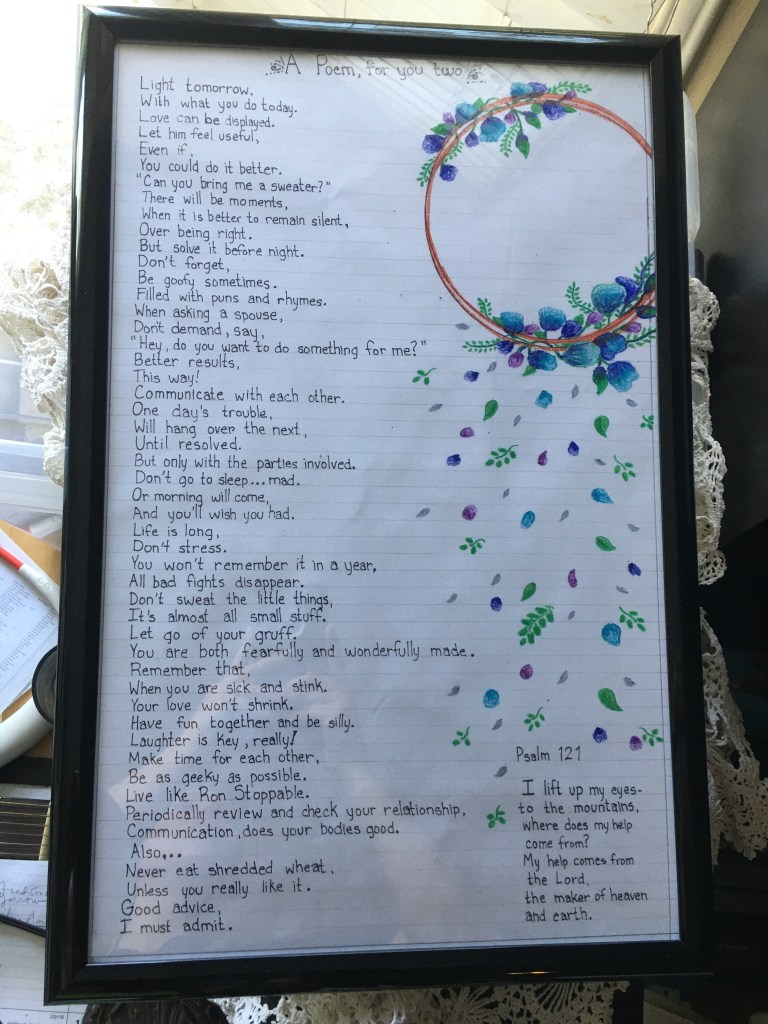 A Poem, for you two
Light tomorrow,
With what you do today.
Love can be displayed.
Let him feel useful,
Even if,
You could do it better.
"Can you bring me a sweater?"
There will be moments,
When it is better to remain silent,
Over being right.
But solve it before night.
Don't forget,
Be goofy sometimes.
Filled with puns and rhymes.
When asking a spouse,
Don't demand, say,
"Hey, do you want to do something for me?"
Better results,
This way!
Communicate with each other.
One day's trouble,
Will hang over the next,
Until resolved.
But only with the parties involved.
Don't go to sleep...mad.
Or morning will come,
And you'll wish you had.
Life is long,
Don't stress.
You won't remember it in a year,
All bad fights disappear.
Don't sweat the little things,
It's almost all small stuff.
Let go of your gruff.
You are both fearfully and wonderfully made.
Remember that,
When you are sick and stink.
Your love won't shrink.
Have fun together and be silly.
Laughter is key, really!
Make time for each other,
Be as geeky as possible.
Live like Ron Stoppable.
Periodically review and check your relationship,
Communication, does your bodies good.
Also,..
Never eat shredded wheat,
Unless you really like it.
Good advice,
I must admit.
Psalm 121
I lift up my eyes-
to the mountains,
where does my help
come from?
My help comes from
the Lord,
the maker of heaven
and earth.